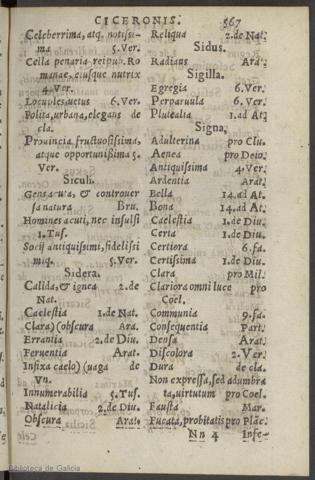 CICERONIS. 567
Celeberrima, atq. notissi-
ma 5.Ver.
Cella penaria reipub. Ro
manae, eiusque nutrix
4.Ver.
Locuples, uetus 6.Ver.
Polita, urbana, elegans de
cla.
Prouincia fructuosissima,
atque opportunissima 5.
Ver.
Siculi.
Gens acuta, & controuer
sa natura Bru.
Homines acuti, nec insulsi
1.Tus.
Socij antiquissimi, fidelissi
miq. 5.Ver.
Sidera.
Calida, & ignea 2.de
Nat.
Caelestia 1.de Nat.
Clara) (obscura Ara.
Errantia 2.de Diu.
Feruentia Arat.
Infixa caelo) (uaga de
Vn.
Innumerabilia 5.Tus.
Natalicia 2.de Diu.
Obscura Arat.
Reliqua 2.de Nat.
Sidus.
Radians Arat.
Sigilla.
Egregia 6.Ver.
Perparuula 6.Ver.
Plutealia 1.ad At.
Signa,
Adulterina pro Clu.
Aenea pro Deio.
Antiquissima 4.Ver.
Ardentia Arat.
Bella 14.ad At.
Bona 14.ad At.
Caelestia 1.de Diu.
Certa 1.de Diu.
Certiora 6.fa.
Certissima 1.de Diu.
Clara pro Mil.
Clariora omni luce pro
Coel.
Communia 9.fa.
Consequentia Part.
Densa Arat.
Discolora 2.Ver.
Dura de cla.
Non expressa, sed adumbra
ta, uirtutum pro Coel.
Fausta Mar.
Fucata, probitatis pro Planc.
Nn 4 Infe-
Biblioteca de Galicia